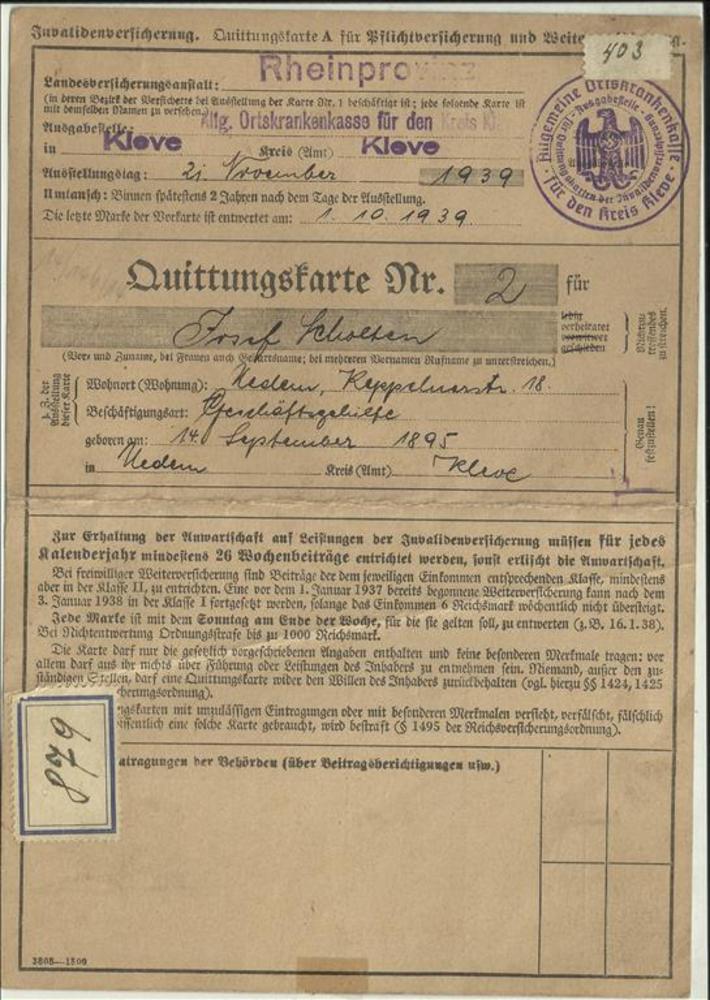 Invalidenversicherung. Quittungskarte A für Pflichtversicherung und
403
Landesversicherungsanstalt: Rheinprovinz
(in deren Bezirk der Versicherte bei Ausstellung der Karte Nr. 1 beschäftigt ist; jede folgende Karte ist
mit demselben Namen zu versehen.)
Ausgabestelle: Allg. Ortskrankenkasse für den Kreis Kl.
in Kleve Kreis (Amt) Kleve
Ausstellungstag: 21. November 1939
Umtausch: Binnen spätestens 2 Jahren nach dem Tage der Ausstellung.
Die letzte Marke der Vorkarte ist entwertet am: 1. 10. 1939.
Allgemeine Ortskrankenkasse
für den Kreis Kleve
Quittungskarte Nr. 2 für
Josef Scholten
ledig
verheiratet
verwitwet
geschieden
Nichtzu-
treffendes
zu streichen.
(Vor- und Zuname, bei Frauen auch Geburtsname; bei mehreren Vornamen Rufname zu unterstreichen.)
z. Z. der
Ausstellung
dieser Karte
Wohnort (Wohnung): Uedem, 18.
Beschäftigungsart: Geschäftsgehilfe
geboren am: 14. September 1895
in Uedem Kreis (Amt) Kleve
Genau
festzustellen!
Zur Erhaltung der Anwartschaft auf Leistungen der Invalidenversicherung müssen für jedes
Kalenderjahr mindestens 26 Wochenbeiträge entrichtet werden, sonst erlischt die Anwartschaft.
Bei freiwilliger Weiterversicherung sind Beiträge der dem jeweiligen Einkommen entsprechenden Klasse, mindestens
aber in der Klasse II, zu entrichten. Eine vor dem 1. Januar 1937 bereits begonnene Weiterversicherung kann nach dem
3. Januar 1938 in der Klasse I fortgesetzt werden, solange das Einkommen 6 Reichsmark wöchentlich nicht übersteigt.
Jede Marke ist mit dem Sonntag am Ende der Woche, für die sie gelten soll, zu entwerten (z. B. 16. 1. 38).
Bei Nichtentwertung Ordnungsstrafe bis zu 1000 Reichsmark.
Die Karte darf nur die gesetzlich vorgeschriebenen Angaben enthalten und keine besonderen Merkmale tragen; vor
allem darf aus ihr nichts über Führung oder Leistungen des Inhabers zu entnehmen sein. Niemand, außer den zu-
ständigen Stellen, darf eine Quittungskarte wider den Willen des Inhabers zurückbehalten (vgl. hierzu §§ 1424, 1425
cherungsordnung).
ngskarten mit unzulässigen Eintragungen oder mit besonderen Merkmalen versieht, verfälscht, fälschlich
issentlich eine solche Karte gebraucht, wird bestraft (§ 1495 der Reichsversicherungsordnung).
879
ntragungen der Behörden (über Beitragsberichtigungen usw.)